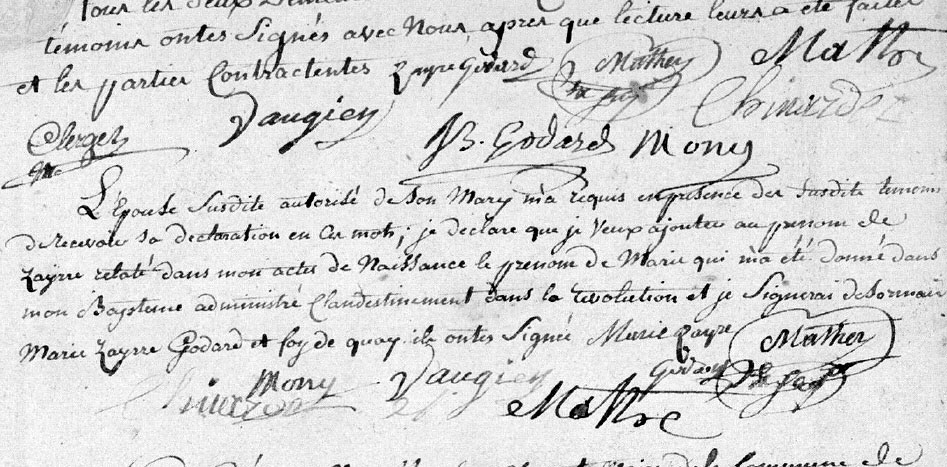 tous les deux
témoins ontes Signés avec Nous, apres que lecture leurs a été faites
et les partier Contractentes Zayre Godard Mathey Mathe
Clerget Vaugien JB. Godard Mony Chinardet
L'Epouse Susdite autorisé de Son Mary m'a requis en présence des Susdite temoins
de recevoir sa declaration en ces mots; je déclare que je Veux ajoutee au prenom de
Zayrre relaté dans mon actes de Naissance le prenom de Marie qui m'a été donné dans
mon Bapteme administré Clandestinement dans la revolution et je Signerai desormais
Marie Zayrre Godard et foy de quay ils ontes Signée Marie Zayre
Godard Mathey
Mony Vaugien
Mathe
Commune de